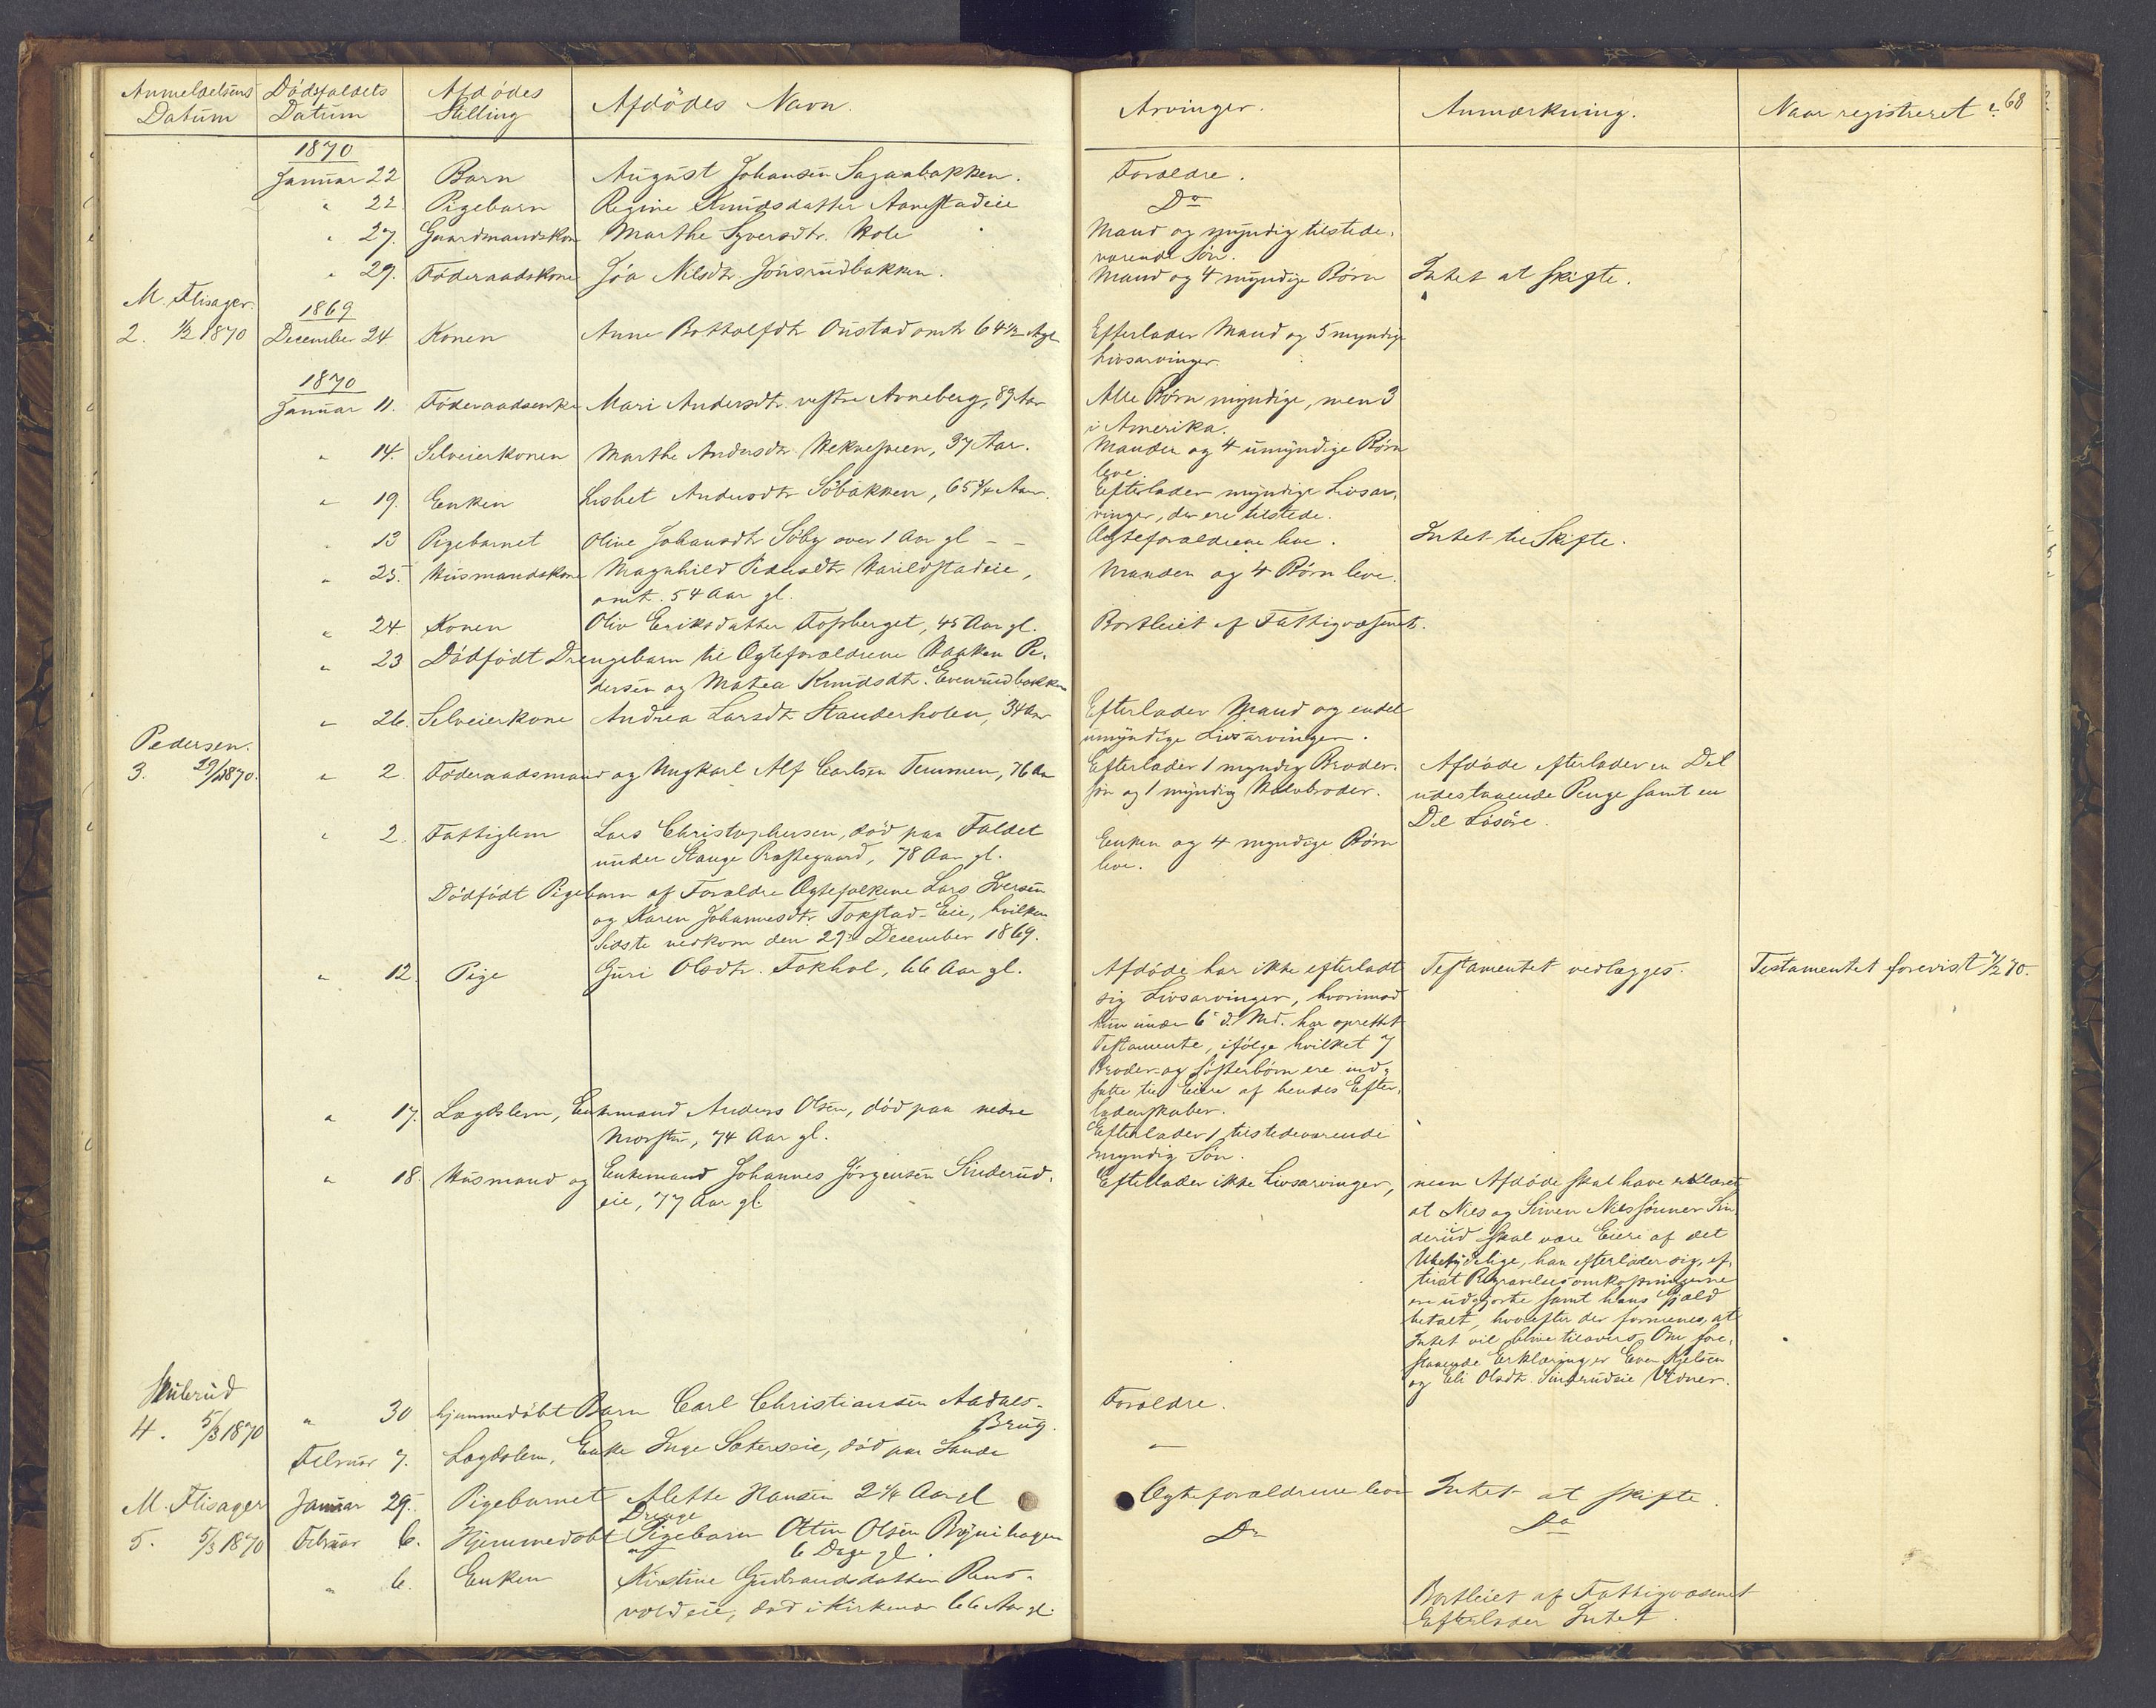 Anmeldelsens Datum | Dødsfaldets Datum | Afdödes Stilling | Afdödes Navn | Arvinger. | Anmærkning. | Naar registreret?
68
1870
Januar 22 | Barn | August Johansen Sagaabakken. | Forældre.
" 22. | Pigebarn | Regine Knudsdatter Aanestadeie | Do
" 27. | Gaardmandskone | Marthe Syversdtr. Hole | Mand og myndig tilstede-
værende Søn.
" 29. | Föderaadskone | Jöa Nilsdtr. Jönsrudbakken. | Mand og 4 myndige Börn | Intet at skifte.
M. Flisager.
1869
2. 1/2 1870 | December 24 | Konen | Anne Bottolfdtr Oustad omtr 64 1/2 | Efterlader Mand og 5 myndige
Livsarvinger.
1870
Januar 11. | Föderaadsenke | Mari Andersdtr. vestre Arneberg, 89 Aar | Alle Börn myndige, men 3
i Amerika.
" 14. | Selveierkonen | Marthe Andersdtr, 37 Aar. | Manden og 4 umyndige Börn
leve.
" 19. | Enken | Lisbet Andersdtr Söbakken, 65 3/4 Aar. | Efterlader myndige Livsar-
vinger, der ere tilstede.
" 13 | Pigebarnet | Oline Johansdtr Söby over 1 Aar gl - - | Ægteforældrene leve. | Intet til Skifte.
" 25. | Husmandskone | Magnhild Pedersdtr Harildstadeie, | Manden og 4 Börn leve.
omtr. 54 Aar gl.
" 24. | Konen | Oliv Eriksdatter Fosberget, 45 Aar gl. | Bortleiet af Fattigvæsenet.
" 23 | Dödfödt Drengebarn til Ægteforældrene Haaken Pe-
dersen og Mathea Knudsdtr. Evenrudbakken
" 26. | Selveierkone | Andrea Larsdtr Standerholen, 34 Aar | Efterlader Mand og endel
umyndige Livsarvinger.
Pedersen.
3. 29/1 1870. | " 2. | Föderaadsmand og Ungkarl Alf Carlsen Temmen, 76 Aar | Efterlader 1 myndig Broder-
sön og 1 myndig Halvbroder. | Afdöde efterlader en Del
udestaaende Penge samt en
Del Lösöre.
" 2. | Fattiglem | Lars Christophersen, död paa Faldet
under Stange Præstegaard, 78 Aar gl. | Enken og 4 myndige Börn
leve.
Dödfödt Pigebarn af Forældre Ægtefolkene Lars Iversen
og Karen Johannesdtr. Tokstad-Eie, hvilken
Sidste nedkom den 29de December 1869.
" 12. | Pige | Guri Olsdtr. Fokhol, 66 Aar gl. | Afdöde har ikke efterladt | Testamentet vedlægges. | Testamentet forevist 7/2 70.
sig Livsarvinger, hvorimod
hun under 6te d. Md. har oprettet
Testamente, ifölge hvilket 7
Broder- og Sösterbörn ere ind-
satte til Eiere af hendes Efter-
ladenskaber.
" 17. | Lægdslem, Enkemand Anders Olsen, död paa nedre
Morstu, 74 Aar gl. | Efterlader 1 tilstedeværende
myndig Sön.
" 18. | Husmand og Enkemand Johannes Jörgensen Sinderud-
eie, 77 Aar gl. | Efterlader ikke Livsarvinger, | men Afdöde skal have erklæret,
at Niels og Simen Nielssönner Sin-
derud skal være Eiere af det
Ubetydelige, han efterlader sig, ef-
terat Begravelsesomkostningerne
ere udgjorte samt hans Gjæld
betalt, hvorefter der formenes, at
Intet vil blive tilovers. Om fore-
staaende Erklæring er Even Kjelsen
og Eli Olsdtr. Sinderudeie Vidner.
Skulerud
4. 5/3 1870 | " 30 | hjemmedöbt Barn Carl Christiansen Aadals-
Brug. | Forældre.
Februar 7. | Lægdslem, Enke Inge Sæterseie, död paa Sande | -
M. Flisager | Januar 29. | Pigebarnet Alette Hansen 2 1/4 Aar gl | Ægteforældrene leve | Intet at skifte.
Drenge
5. 5/3 1870 | Februar 6. | Hjemmedöbt Pigebarn Ottin Olsen Brynihagen | Do | Do
6 Dage gl.
" 6. | Enken | Kirstine Gudbrandsdatter Rens-
voldeie, död i Kirkenær 66 Aar gl. | Bortleiet af Fattigvæsenet
Efterlader Intet.